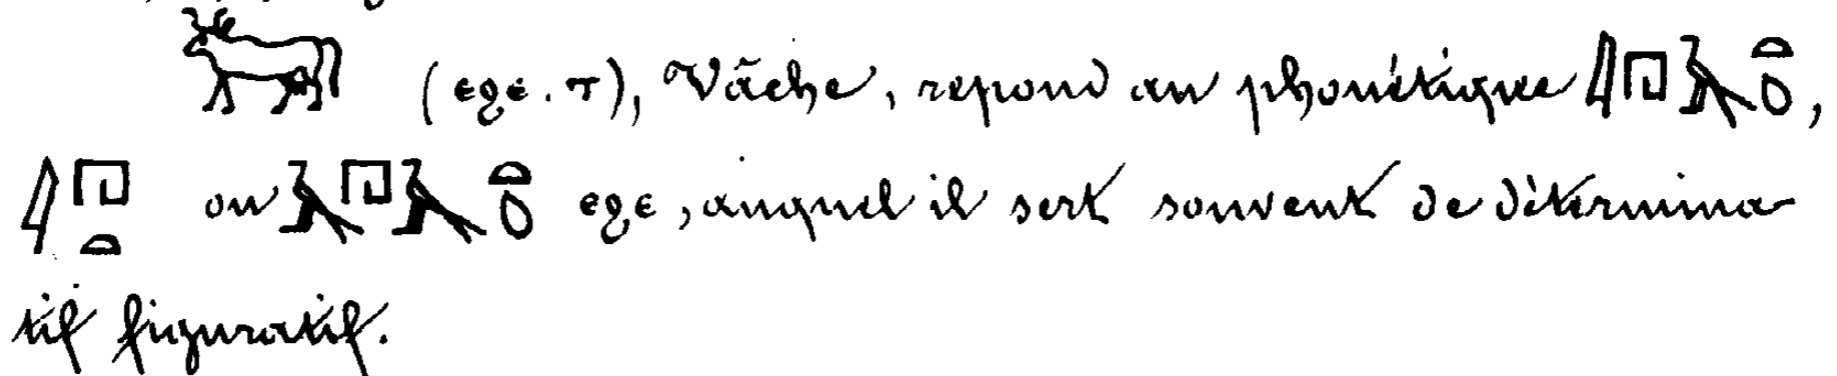 𓃒 (ⲉϩⲉ.ⲧ), Vâche, repond au phonétique 𓇋𓉔𓄿𓏏𓆇,
𓇋𓉔𓏏 ou 𓄿𓉔𓄿𓏏𓆇 ⲉϩⲉ, auquel il sert souvent de détermina-
tif figuratif.